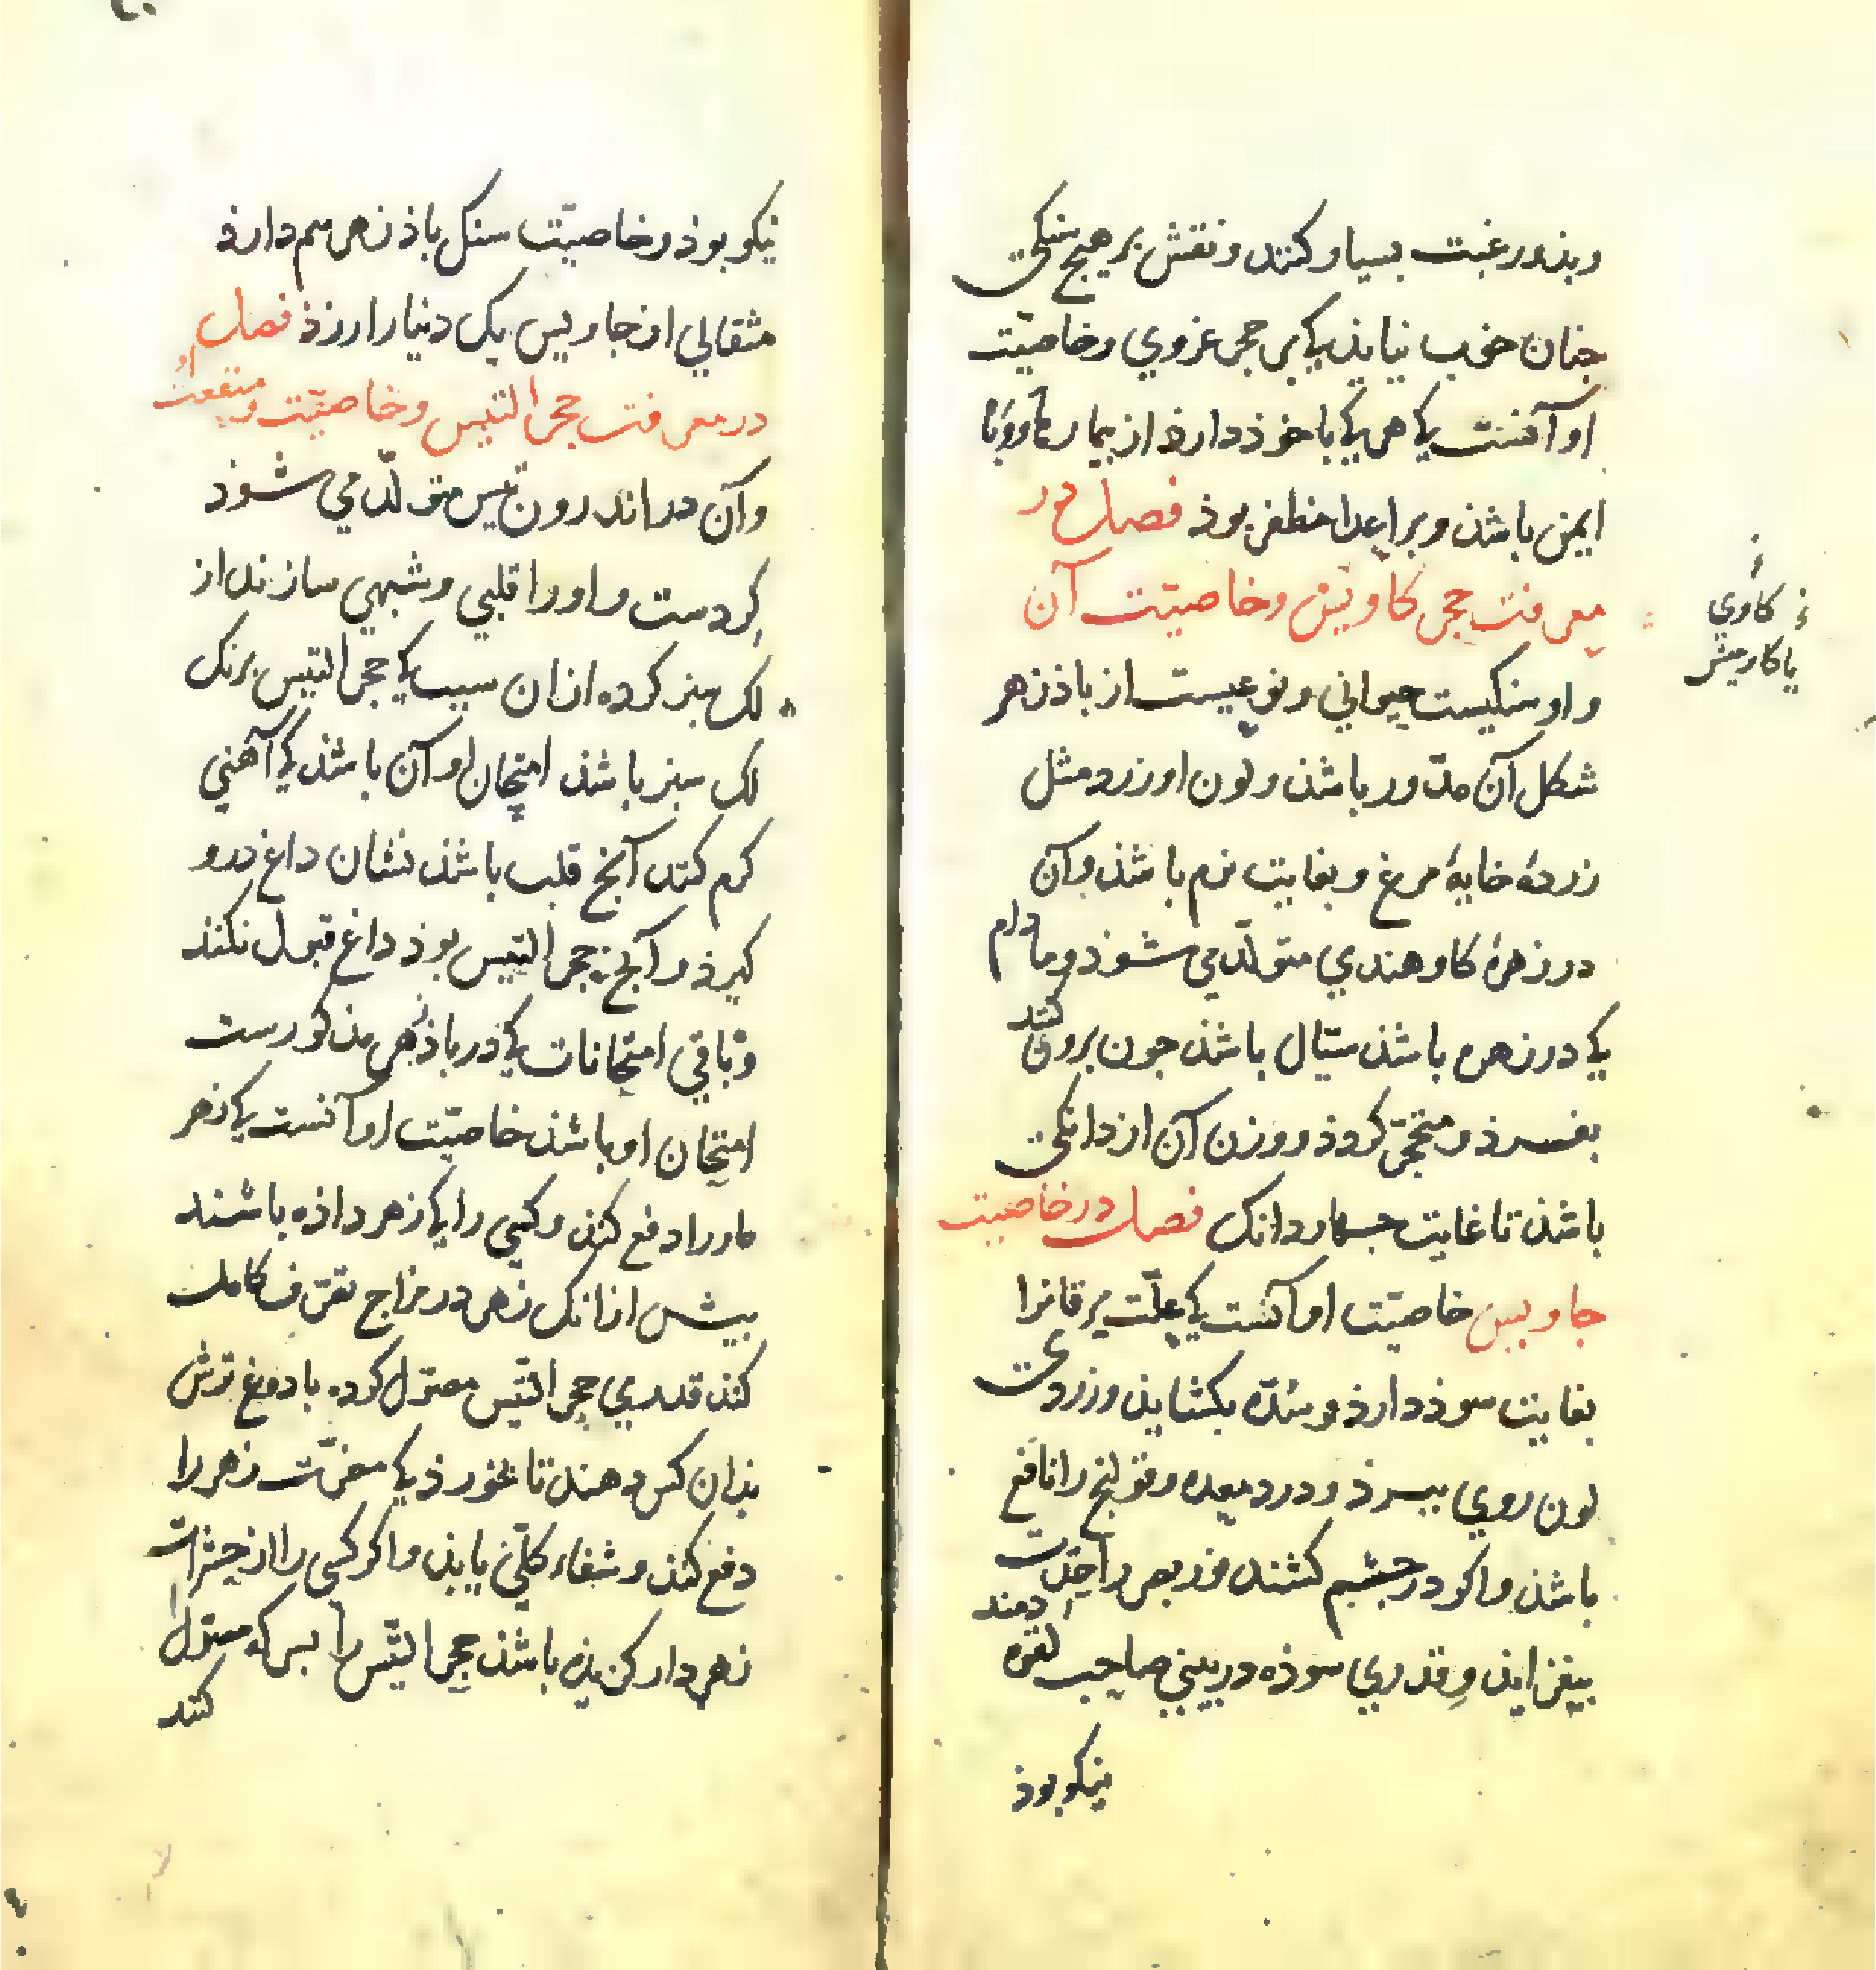 وبذو رغبت بسیار کنند ونقش بر هیچ سنکی
جنان خوب نیایذ کی بر حجر غروي وخاصیّت
او آنست کی هر کی با خوذ دارذ از بیماریهاء وبا
ایمن باشذ وبر اعدا مظفر بوذ فصل در
معرفت حجر کاویش وخاصیّت آن
واو سنکیست حیواني ونوعیست از باذزهر
شکل آن مدّور باشذ ولون او زرد مثل
زردهٔ خایهٔ مرغ وبغایت نرم باشذ وآن
در زهرهٔ کاو هندي متولّد مي شوذ ومادام
کی در زهره باشذ سیّال باشذ جون برون کنند
بفسرذ ومتحجّر کردذ ووزن آن از دانکی
باشذ تا غایت جهار دانک فصل در خاصیت
جاویس خاصیّت او آنست کی علّت یرقانرا
بغایت سوذ دارذ وسدّه بکشایذ وزردی
لون روي ببرذ ودرد معده وقولنج را نافع
باشذ واکر در جشم کشند نور بصر را حدّت
بیفزایذ وقدري سوذه در بیني صاحب لقوه دمند
نیکو بوذ
کاوي
یا کاومیش
نیکو بوذ وخاصیّت سنک باذزهر هم دارذ
مثقالي از جاویس یک دینار ارزذ فصل
در معرفت حجر التیس وخاصیّت ومنفعت او
وآن در اندرون تیس متولّد مي شوذ
کردست واورا قلبي وشبهي سازند از
لک سبز کرده از ان سبب کی حجر التیس برنک
لک سبز باشذ امتحان او آن باشذ کی آهني
کرم کنند آنج قلب باشذ نشان داغ درو
کیرذ وآنج حجر التیس بوذ داغ قبول نکند
وباقي امتحانات کی در باذزهر مذکورست
امتحان او باشذ خاصیّت او آنست کی زهر
مار را دفع کند وکسي را کی زهر داذه باشند
بیش از انک زهر در مزاج تصرّف کامل
کند قدري حجر التیس معتزل کرده با دوغ ترش
بذان کس دهند تا بخورذ کی مضرّت زهر را
دفع کند وشفاء کلّي یابذ واکر کسي را از حشرات
زهردار کزیذه باشذ حجر التیس را بسرکه معتزل
کنند